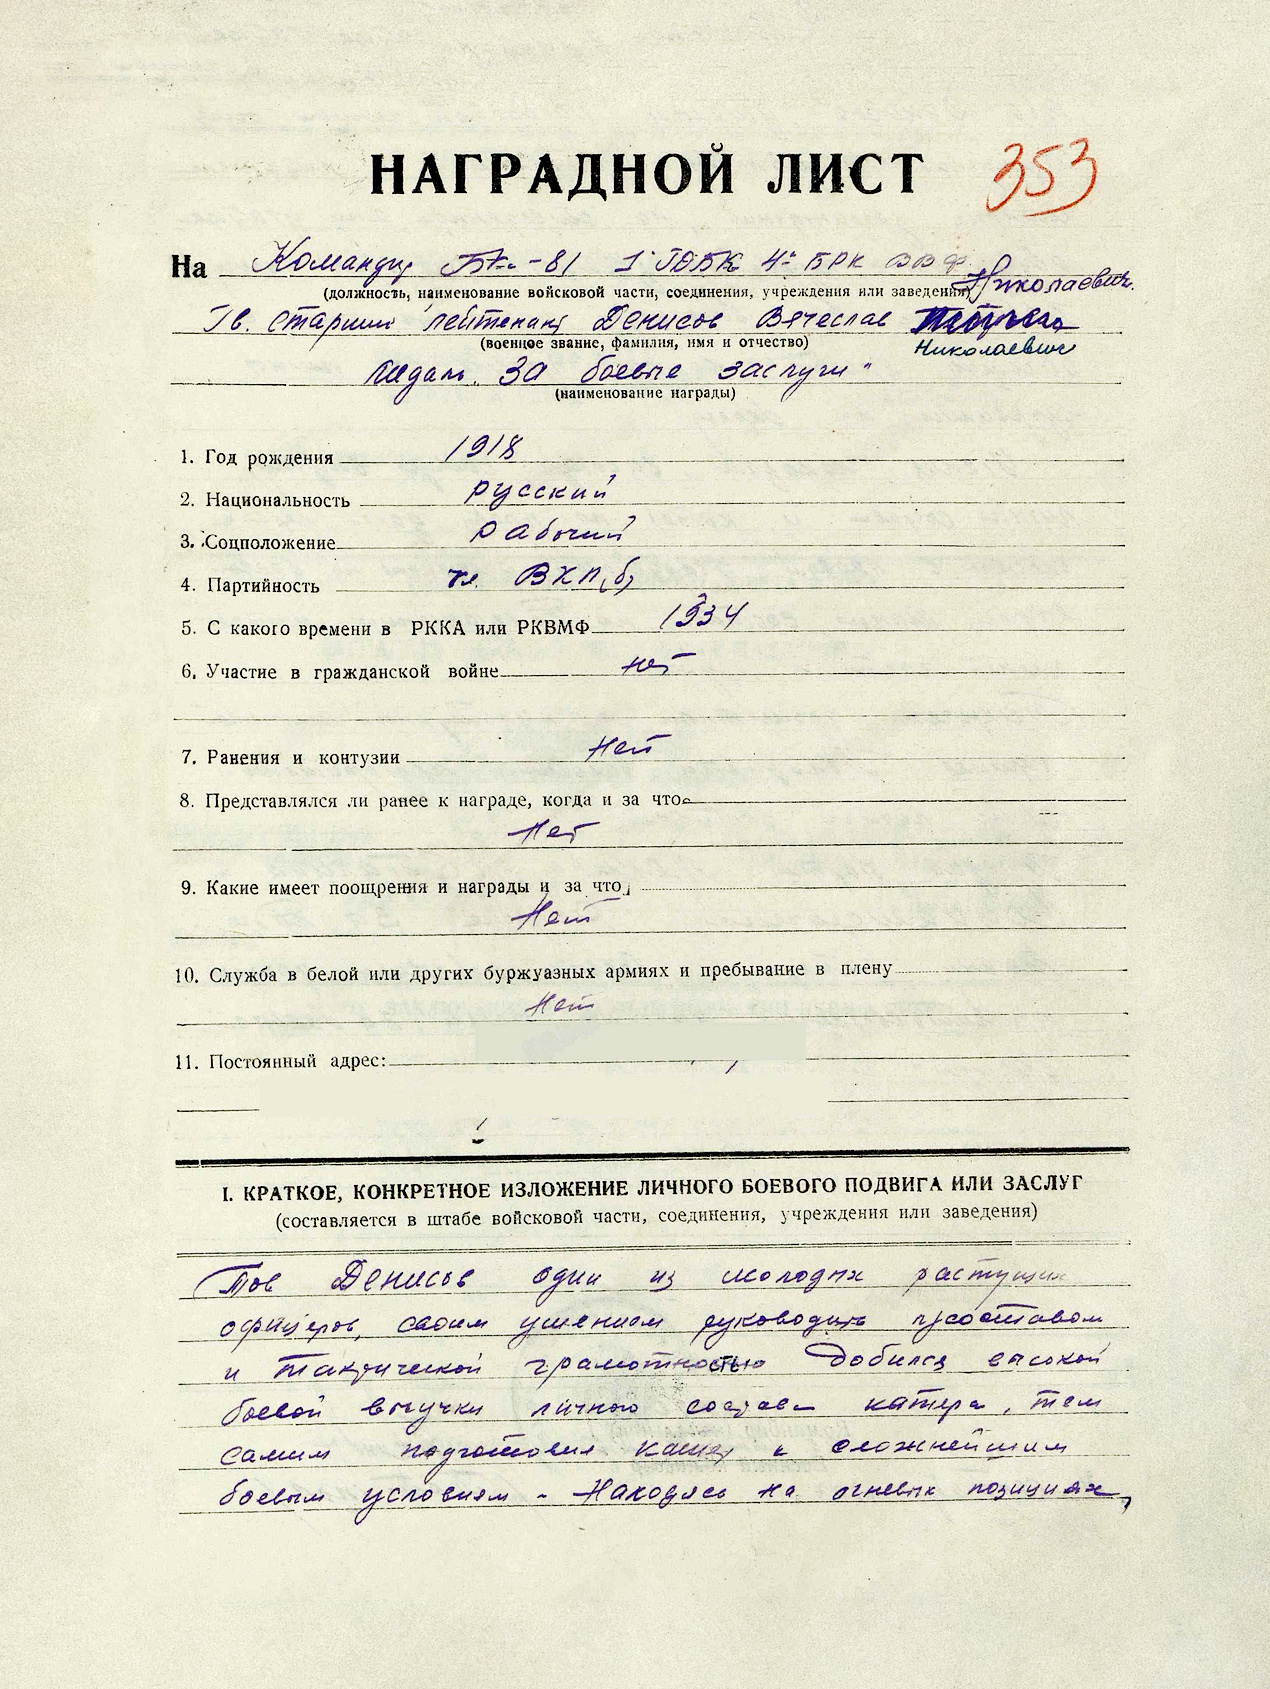 НАГРАДНОЙ ЛИСТ 353
На Командир БКа-81 1 ГДБК 4й БРК ВВФ
(должность, наименование войсковой части, соединения, учреждения или заведения) Николаевич.
Гв. старший лейтенант Денисов Вячеслав
(военное звание, фамилия, имя и отчество) Николаевич
Медаль „За боевые заслуги"
(наименование награды)
1. Год рождения 1918
2. Национальность русский
3. Соцположение рабочий
4. Партийность чл. ВКП(б)
5. С какого времени в РККА или РКВМФ 1934
6. Участие в гражданской войне нет
7. Ранения и контузии Нет
8. Представлялся ли ранее к награде, когда и за что
Нет
9. Какие имеет поощрения и награды и за что
Нет
10. Служба в белой или других буржуазных армиях и пребывание в плену
Нет
11. Постоянный адрес:
I. КРАТКОЕ, КОНКРЕТНОЕ ИЗЛОЖЕНИЕ ЛИЧНОГО БОЕВОГО ПОДВИГА ИЛИ ЗАСЛУГ
(составляется в штабе войсковой части, соединения, учреждения или заведения)
Тов Денисов один из молодых растущих
офицеров, своим умением руководить л/составом
и тактической грамотностью добился высокой
боевой выучки личного состава катера, тем
самим подготовил катер к сложнейшим
боевым условиям - Находясь на огневых позициях,